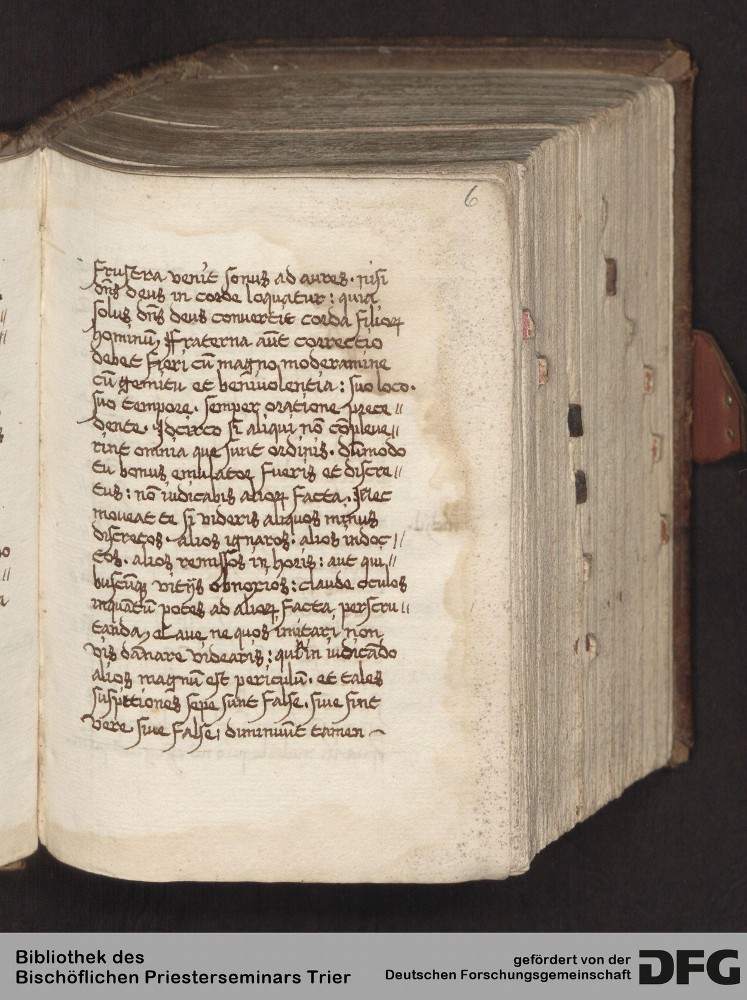 6
frustra venit sonus ad aures. nisi
dñs deus in corde loquatur: quia
solus dñs deus convertit corda filioꝝ
hominũ, Fraterna aũt correctio
debet fieri cũ magno moderamine
cũ gemitu et benivolentia: suo loco.
suo tempore. semper oratione prece //
dente. Idcirco si aliqui nõ cõpleve //
rint omnia que sunt ordinis. dũmodo
tu bonus emulator fueris et discre //
tus: nõ iudicabis alioꝝ facta. Nec
moveat te si videris aliquos minus
discretos. alios ignaros: alios indoc //
tos. alios remissos in horis: aut qui //
buscũq vitijs obnoxios: claude oculos
inquãtũ potes ad alioꝝ facta perscru //
tanda, Cave ne quos imitari non
vis dãnare videaris: in iudicãdo
alios magnũ est periculũ. et tales
suspitiones sepe sunt false. sive sint
vere sive false: diminuũt tamen
Bibliothek des
Bischöflichen Priesterseminars Trier
gefördert von der
Deutschen Forschungsgemeinschaft
DFG